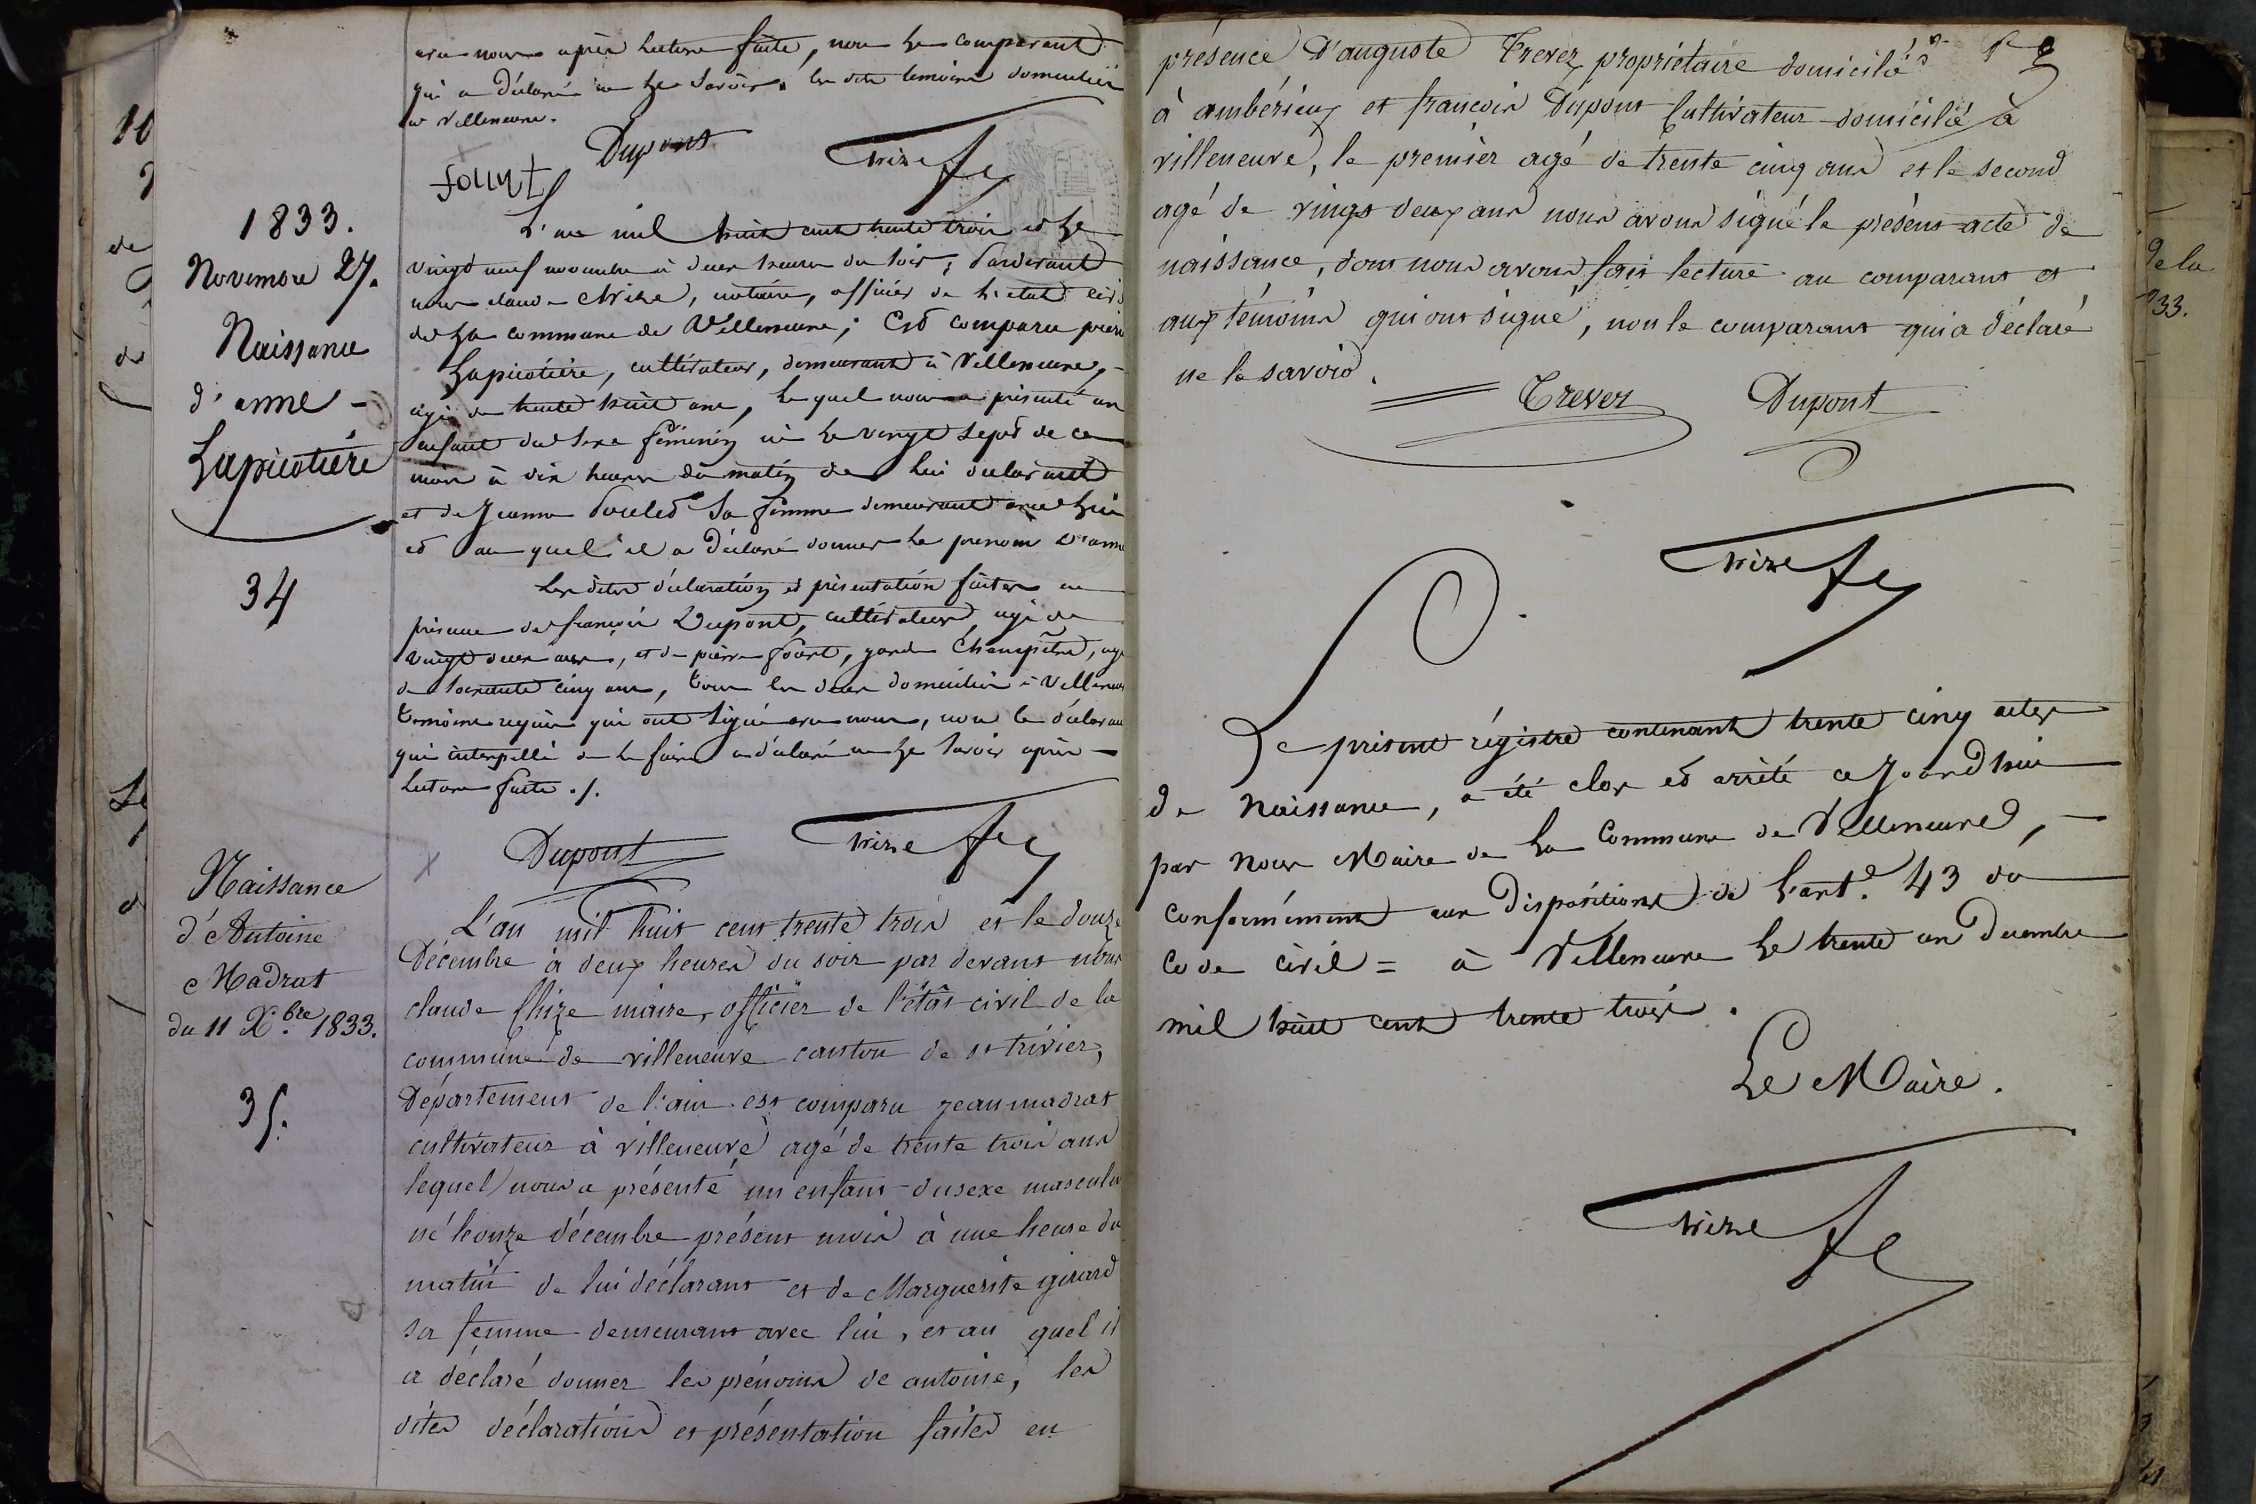 avec nous après lecture faite, non le comparant
qui a déclaré ne le savoir. les dits temoins domiciliés
à Villeneuve.
Dupont
fourt
Chize
1833.
Novembre 27.
Naissance
d'anne
Lapicotière
34
L'an mil huit cent trente trois et le
vingt neuf novembre à deux heures du soir, Pardevant
nous claude Chize, notaire, officier de l'etat civil
de la commune de Villeneuve; Est comparu pierre
Lapicotière, cultivateur, demeurant à Villeneuve,
agé de trente huit ans, le quel nous a présenté un
enfant du sexe féminin né le vingt sept de ce
mois à dix heures du matin de lui déclarant
et de Jeanne Poulet sa femme demeurant avec lui
et au quel il a déclaré donner le prenom d'anne
Les dites déclaration et présentation faites en
présence de françois Dupont, cultivateur, agé de
vingt deux ans, et de pierre fourt, garde Champêtre, agé
de soixante cinq ans, tous les deux domiciliés à Villeneuve
temoins requis qui ont signé avec nous, non le déclarant
qui interpellé de le faire a déclaré ne le savoir après
lecture faite ./.
Dupont
Chize
Naissance
d'Antoine
Madrat
du 11 X.bre 1833.
35.
L'an mil huit cent trente trois et le douze
Décembre à deux heures du soir par devant nous
claude Chize maire, officier de l'état civil de la
commune de villeneuve canton de st trivier,
Département de l'ain est comparu jean madrat
cultivateur à villeneuve agé de trente trois ans
lequel nous a présenté un enfant du sexe masculin
né le onze décembre présent mois à une heure du
matin de lui déclarant et de Marguerite girard
sa femme demeurant avec lui, et au quel il
a déclaré donner les prénoms de antoine, les
dites déclarations et présentation faites en
présence d'auguste Trever propriétaire domicilié
à ambérieux et françois Dupont Cultivateur domicilié à
villeneuve, le premier agé de trente cinq ans et le second
agé de vingt deux ans nous avons signé le présent acte de
naissance, dont nous avons fait lecture au comparant et
aux témoins qui ont signé, non le comparant qui a déclaré
ne le savoir.
Trever
Dupont
Chize
Le présent régistre contenant trente cinq actes
de Naissance, a été clos et arrêté ce Jourd'hui
par Nous Maire de la Commune de Villeneuve,
conformément aux Dispositions de l'art.e 43 du
Code civil = à Villeneuve le trente un Decembre
mil huit cent trente trois.
Le Maire.
Chize
de la
33.